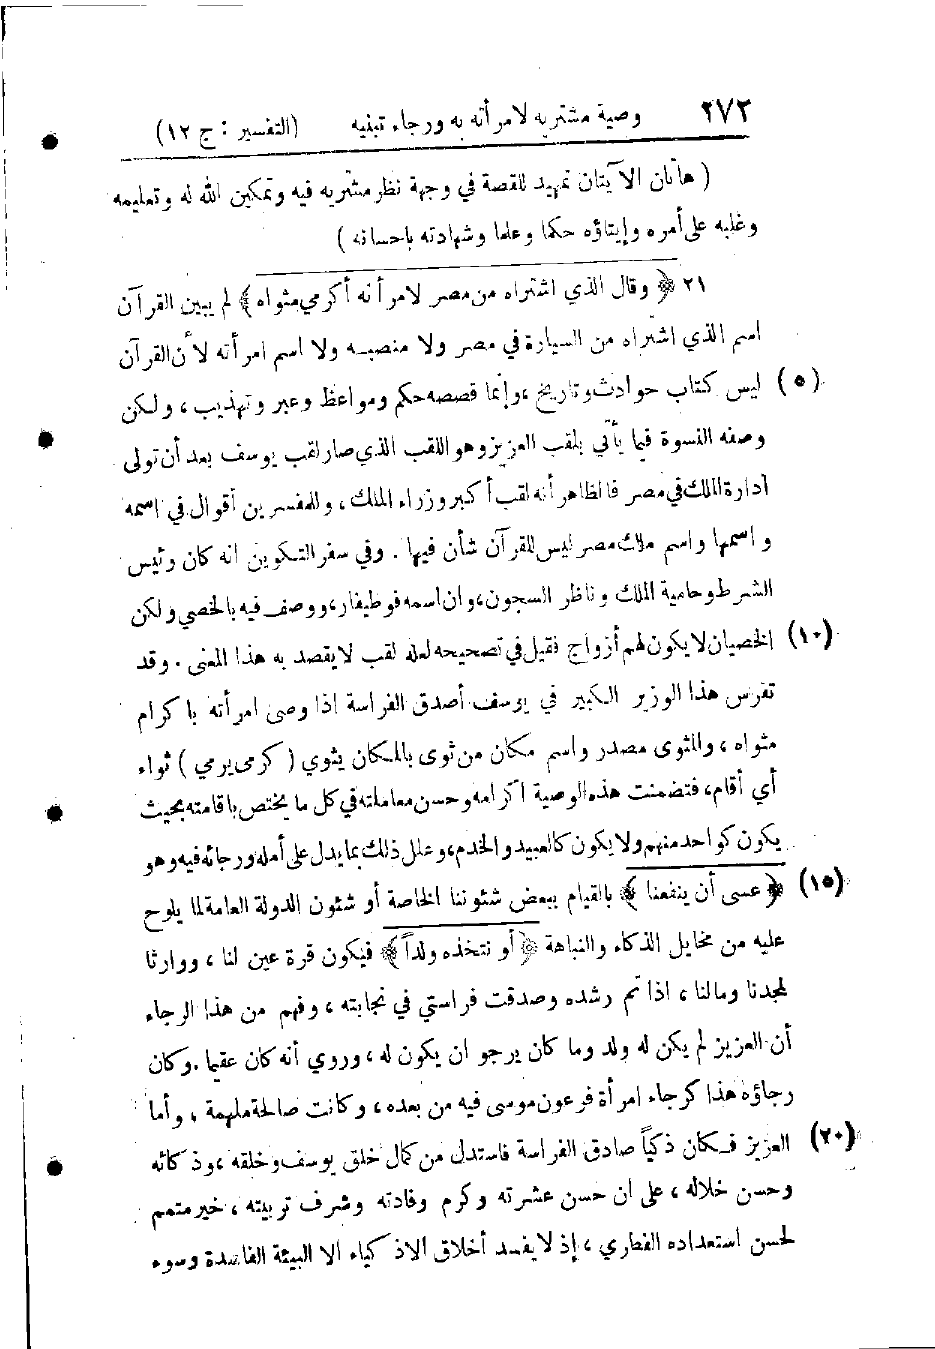 ٢٧٢ وصية مشتريه لامرأته به ورجاء تبنيه (التفسير : ج ١٢)
( هاتان الآيتان تمهيد للقصة في وجهة نظر مشتريه فيه وتمكين الله له وتعليمه
وغلبه على أمره وإيتاؤه حكما وعلما وشهادته باحسانه )
٢١ ﴿ وقال الذي اشتراه من مصر لامرأته أكرمي مثواه ﴾ لم يبين القرآن
اسم الذي اشتراه من السيارة في مصر ولا منصبه ولا اسم امرأته لأن القرآن
(٥) ليس كتاب حوادث وتاريخ ، وإنما قصصه حكم ومواعظ وعبر وتهذيب ، ولكن
وصفه النسوة فيما يأتي بلقب العزيز وهو اللقب الذي صار لقب يوسف بعد أن تولى
ادارة الملك في مصر فالظاهر أنه لقب أكبر وزراء الملك ، وللمفسرين أقوال في اسمه
واسمها واسم ملك مصر ليس للقرآن شأن فيها . وفي سفر التكوين انه كان رئيس
الشرط وحامية الملك وناظر السجون ، وان اسمه فوطيفار ، ووصف فيه بالخصي ولكن
(١٠) الخصيان لا يكون لهم أزواج فقيل في تصحيحه لعله لقب لا يقصد به هذا المعنى . وقد
تفرس هذا الوزير الكبير في يوسف أصدق الفراسة اذا وصى امرأته باكرام
مثواه ، والمثوى مصدر واسم مكان من ثوى بالمكان يثوي ( كرمى يرمي ) ثواء
أي أقام ، فتضمنت هذه الوصية اكرامه وحسن معاملته في كل ما يختص باقامته بحيث
يكون كواحد منهم ولا يكون كالعبيد والخدم ، وعلل ذلك بما يدل على أمله ورجائه فيه وهو
(١٥) ﴿ عسى أن ينفعنا ﴾ بالقيام ببعض شئوننا الخاصة أو شئون الدولة العامة لما يلوح
عليه من مخايل الذكاء والنباهة ﴿ أو نتخذه ولداً ﴾ فيكون قرة عين لنا ، ووارثا
لمجدنا ومالنا ، اذا تم رشده وصدقت فراستي في نجابته ، وفهم من هذا الرجاء
أن العزيز لم يكن له ولد وما كان يرجو ان يكون له ، وروي أنه كان عقيما . وكان
رجاؤه هذا كرجاء امرأة فرعون موسى فيه من بعده ، وكانت صالحة ملهمة ، وأما
(٢٠) العزيز فكان ذكياً صادق الفراسة فاستدل من كمال خلق يوسف وخلقه ، وذكائه
وحسن خلاله ، على ان حسن عشرته وكرم وفادته وشرف تربيته ، خير متمم
لحسن استعداده الفطري ، إذ لا يفسد أخلاق الاذكياء الا البيئة الفاسدة وسوء